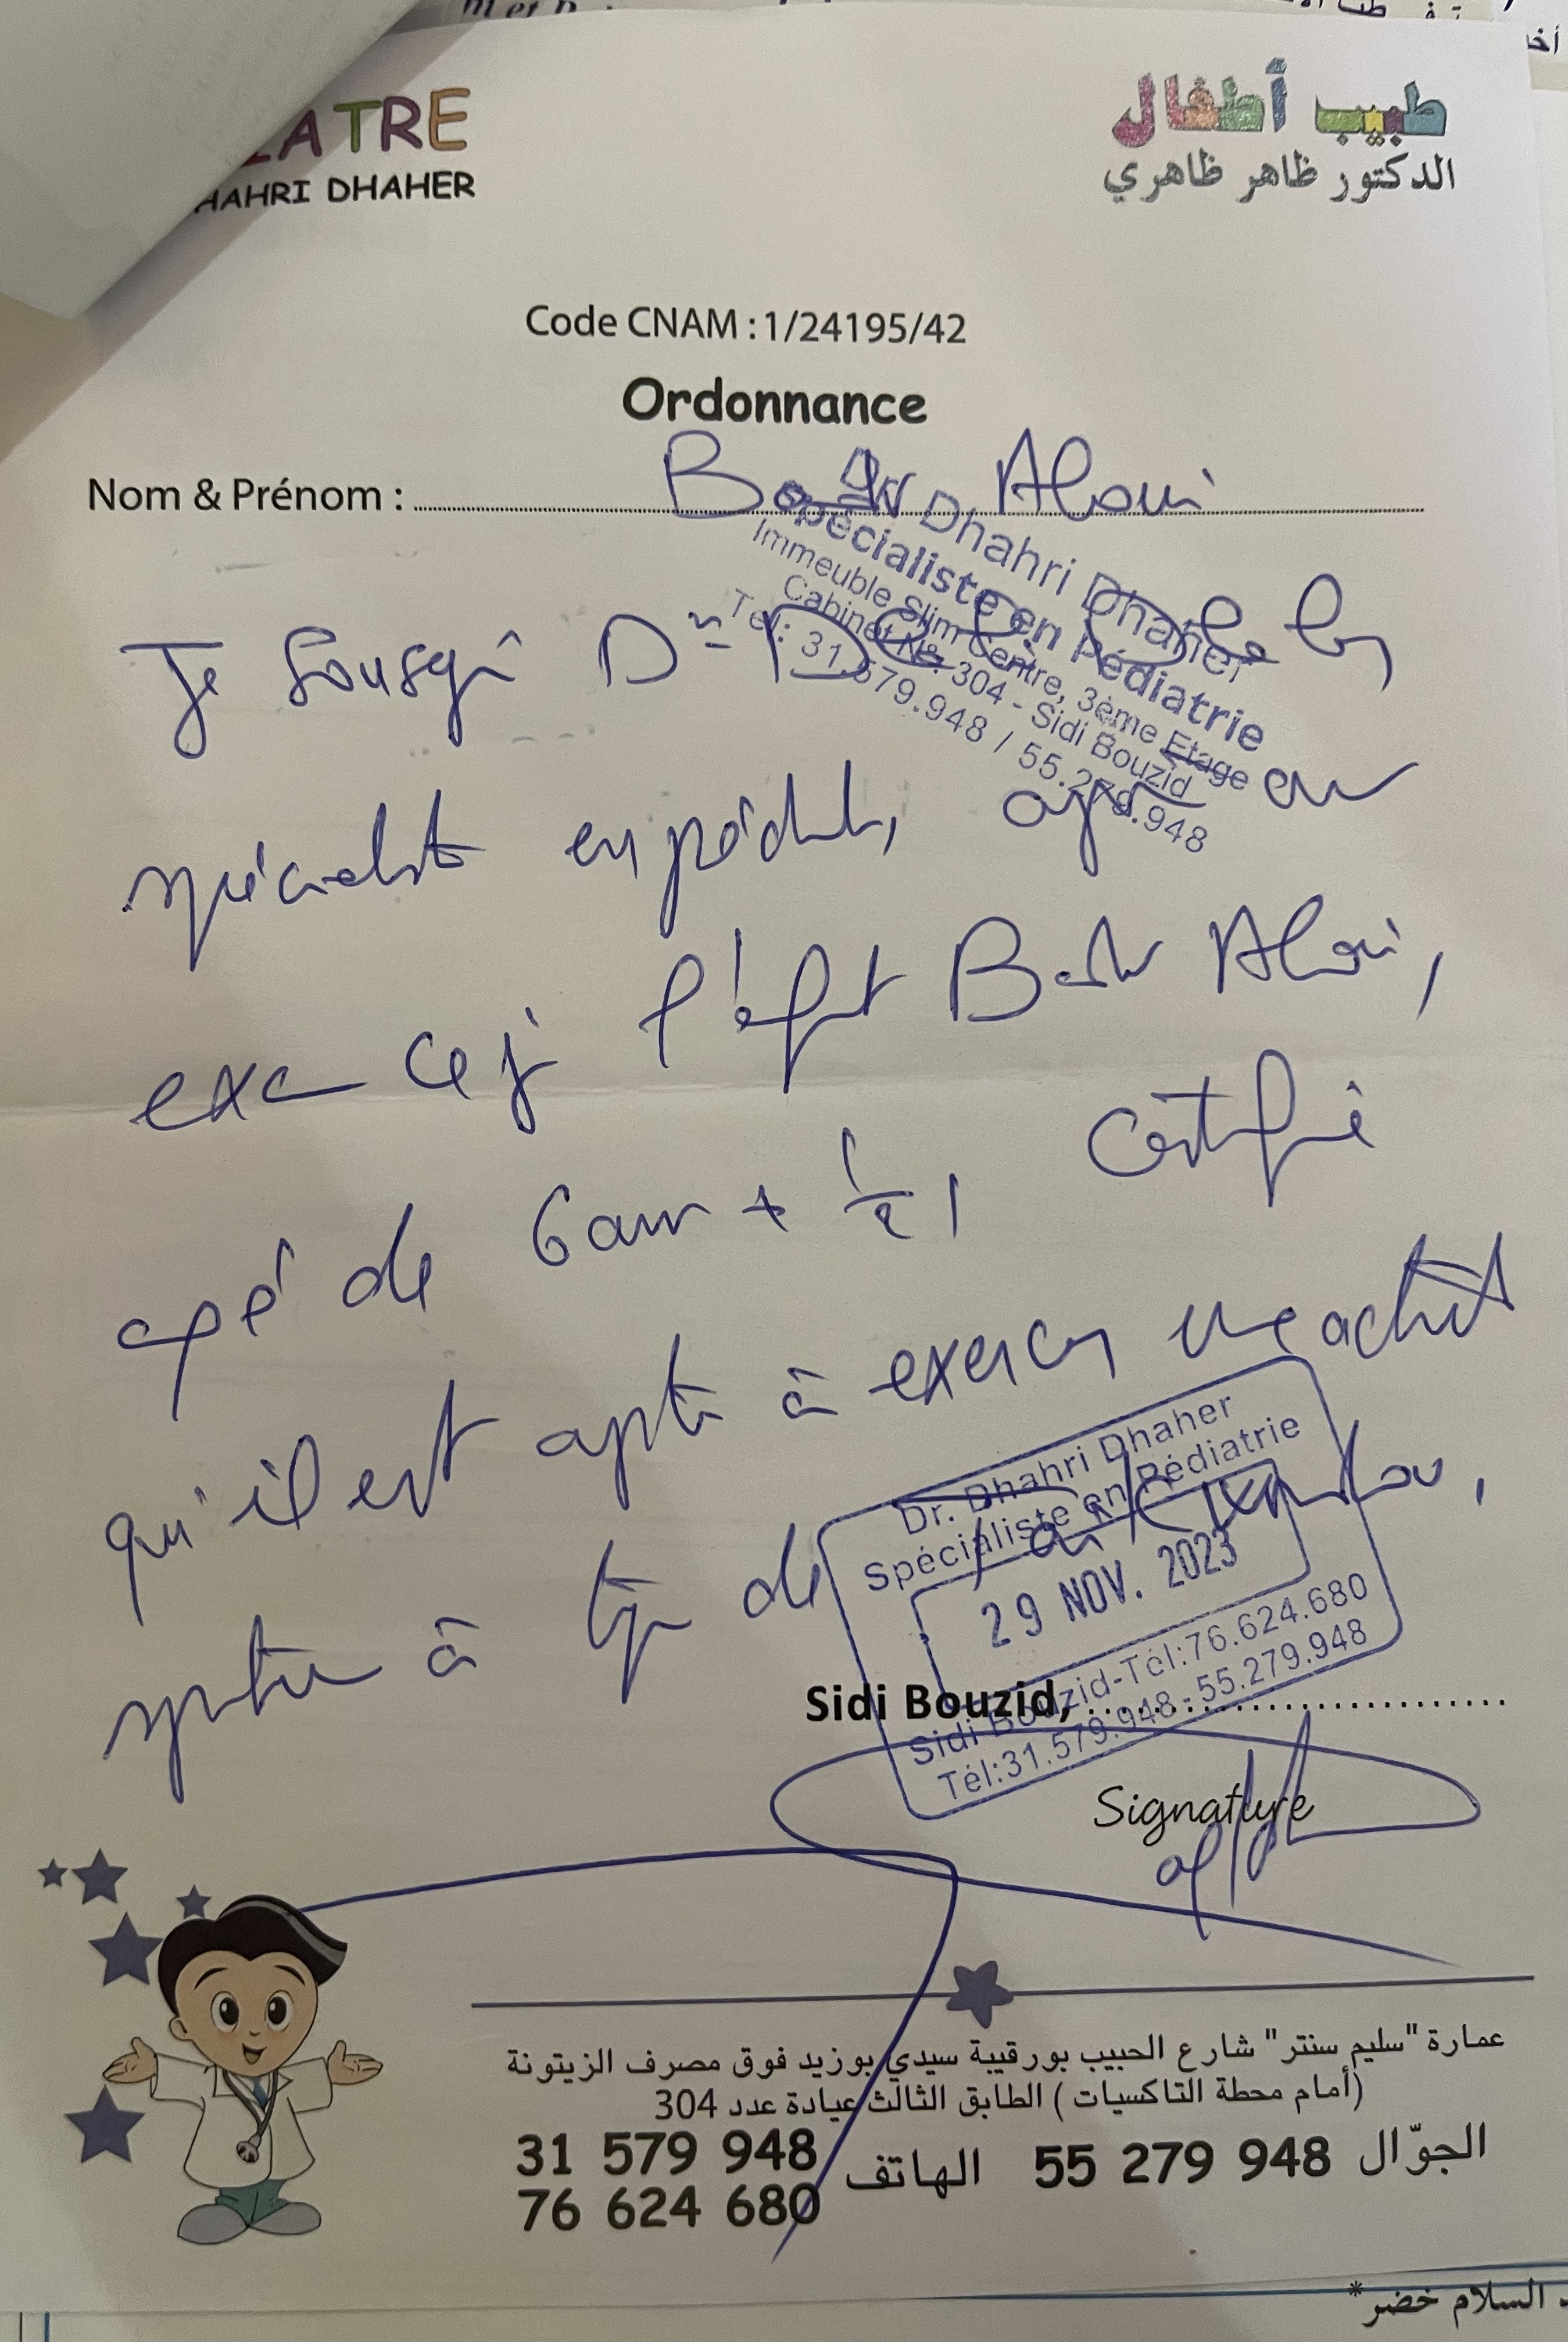 ATRE
طبيب أطفال
HAHRI DHAHER
الدكتور ظاهر ظاهري
Code CNAM : 1/24195/42
Ordonnance
Nom & Prénom : Aloui
Dr Dhahri Dhaher
Spécialiste en Pédiatrie
Immeuble Slim Centre, 3ème Etage
Cabinet N° 304 - Sidi Bouzid
Tel : 31.579.948 / 55.279.948
Je Soussi Dr
spécialiste en pédiatrie, ayant eu
exa ce j l'enfant Aloui,
agé de 6 ans + 1/2, certifie
qu'il est apte à exercer une activité
sportive à type de
Dr. Dhahri Dhaher
Spécialiste en Pédiatrie
29 NOV. 2023
Sidi Bouzid-Tél:76.624.680
Tél:31.579.948-55.279.948
Sidi Bouzid,
Signature
عمارة "سليم سنتر" شارع الحبيب بورقيبة سيدي بوزيد فوق مصرف الزيتونة
(أمام محطة التاكسيات) الطابق الثالث عيادة عدد 304
الجوّال 55 279 948 الهاتف 31 579 948
76 624 680
السلام خضر*